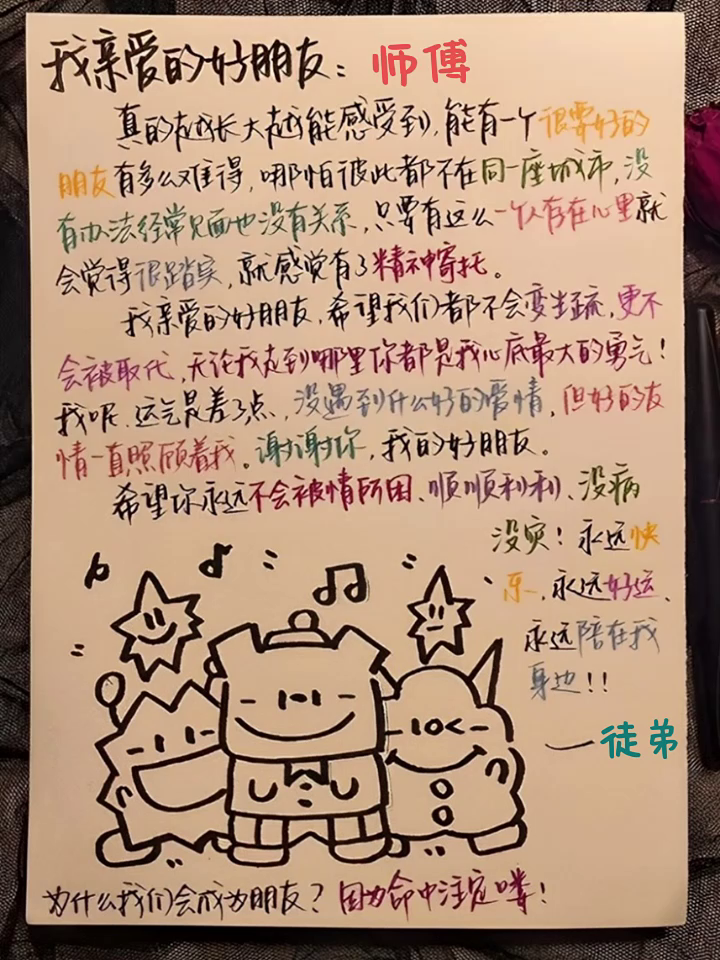 我亲爱的好朋友：师傅
真的越长大越能感受到，能有一个很要好的
朋友有多么难得，哪怕彼此都不在同一座城市，没
有办法经常见面也没有关系，只要有这么一个人存在心里就
会觉得很踏实，就感觉有了精神寄托。
我亲爱的好朋友，希望我们都不会变生疏，更不
会被取代，无论我走到哪里你都是我心底最大的勇气！
我呢、运气是差了点，没遇到什么好的爱情，但好的友
情一直照顾着我。谢谢你，我的好朋友。
希望你永远不会被情所困、顺顺利利、没病
没灾！永远快
乐、永远好运、
永远陪在我
身边！！
—徒弟
为什么我们会成为朋友？因为命中注定喽！